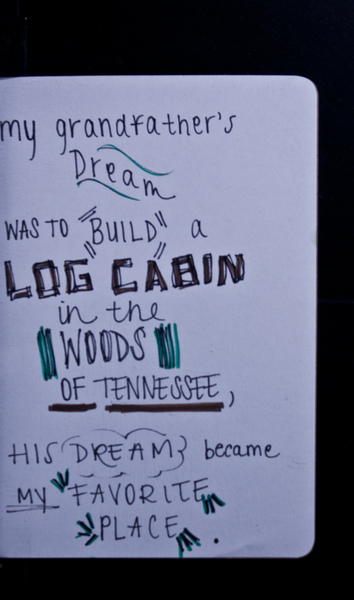 my grandfather's
Dream
WAS TO BUILD a
LOG CABIN
in the
WOODS
OF TENNESSEE,
HIS DREAM became
MY FAVORITE
PLACE.